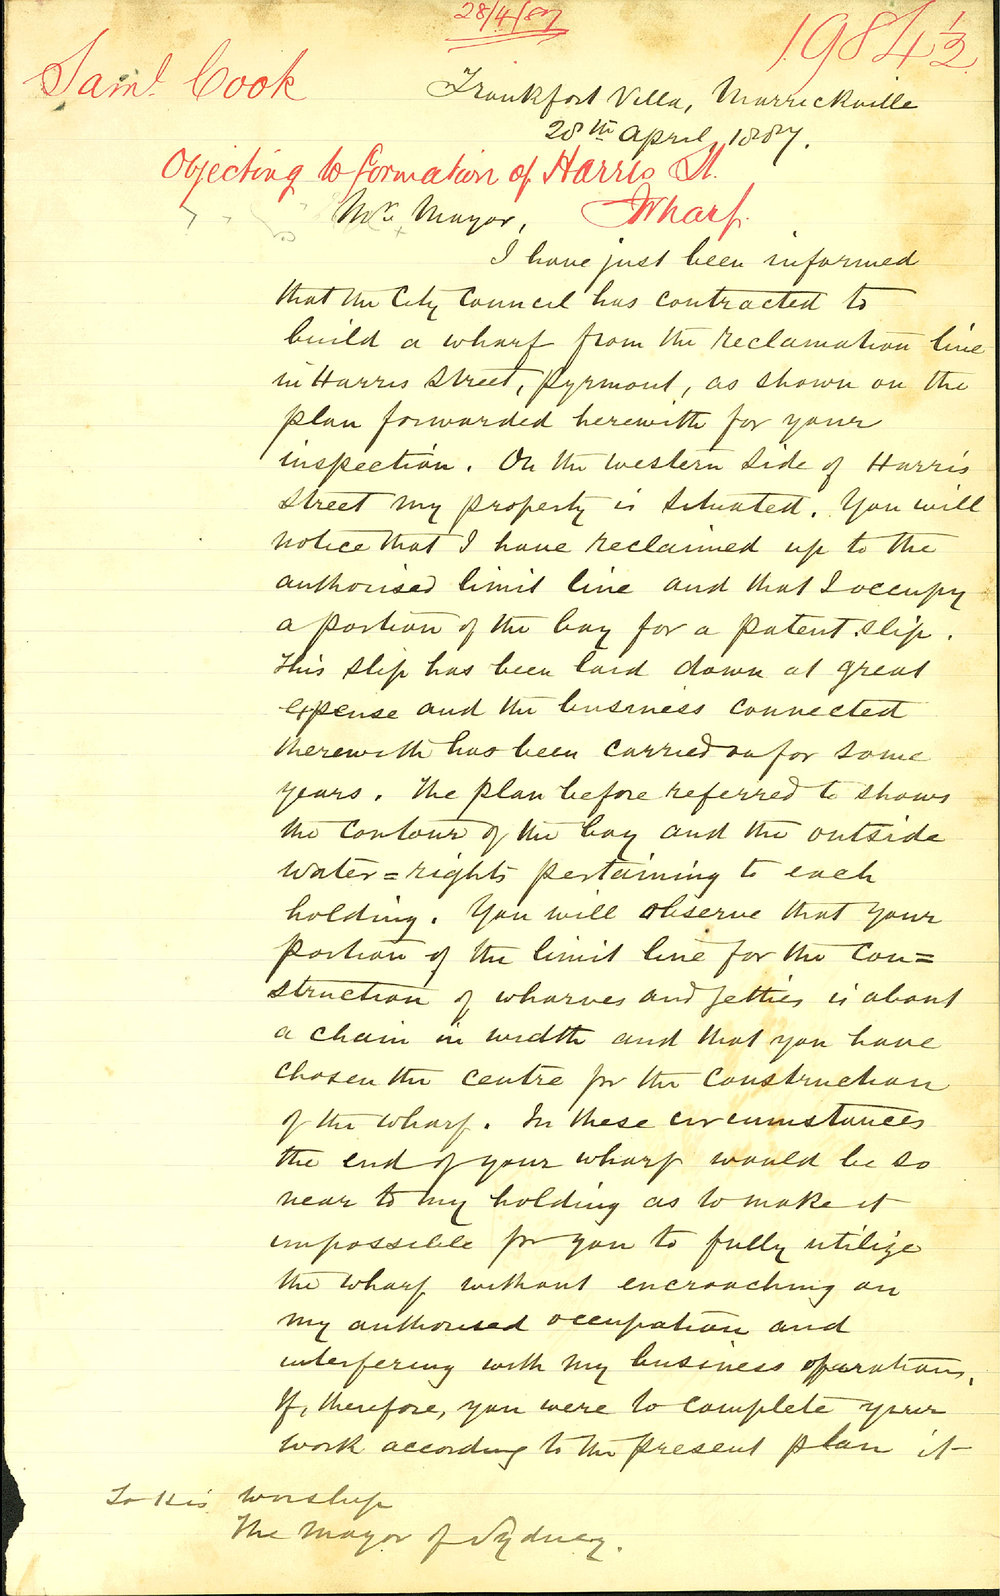 28/4/87
1984½
Saml. Cook
Frankfort Villa, Marrickville
28th April, 1887.
Objecting to formation of Harris St.
Wharf.
Mr. Mayor,
I have just been informed
that the City Council has contracted to
build a wharf from the reclamation line
in Harris Street, Pyrmont, as shown on the
plan forwarded herewith for your
inspection. On the western side of Harris
Street my property is situated. You will
notice that I have reclaimed up to the
authorised limit line and that I occupy
a portion of the bay for a patent slip.
This slip has been laid down at great
expense and the business connected
therewith has been carried on for some
years. The plan before referred to shows
the contour of the bay and the outside
water=rights pertaining to each
holding. You will observe that your
portion of the limit line for the con=
struction of wharves and jetties is about
a chain in width and that you have
chosen the centre for the construction
of the wharf. In these circumstances
the end of your wharf would be so
near to my holding as to make it
impossible for you to fully utilize
the wharf without encroaching on
my authorised occupation and
interfering with my business operations.
If, therefore, you were to complete your
work according to the present plan it
To His Worship
The Mayor of Sydney.